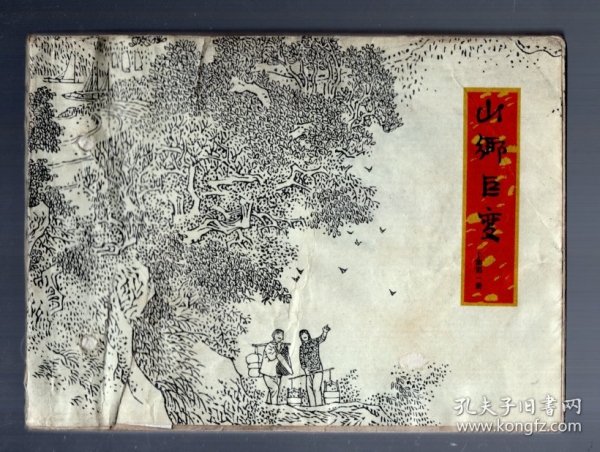 山鄉巨变
孔夫子旧书网
www.kongfz.com